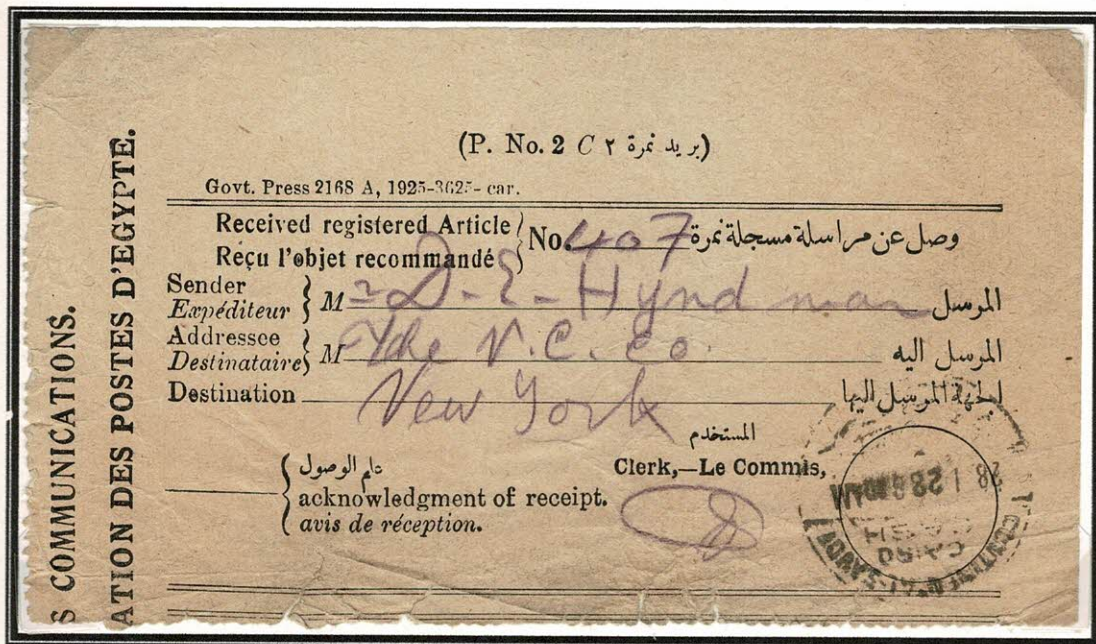 S COMMUNICATIONS.
ATION DES POSTES D'EGYPTE.
(P. No. 2 C بريد نمرة ٢)
Govt. Press 2168 A, 1925-3625- car.
Received registered Article
Reçu l'objet recommandé
No. 407 وصل عن مراسلة مسجلة نمرة
Sender
Expéditeur
M D-E-Hyndman المرسل
Addressee
Destinataire
M The V.C. Co. المرسل اليه
Destination New York الجهة المرسل اليها
المستخدم
Clerk,—Le Commis,
علم الوصول
acknowledgment of receipt.
avis de réception.
CAIRO